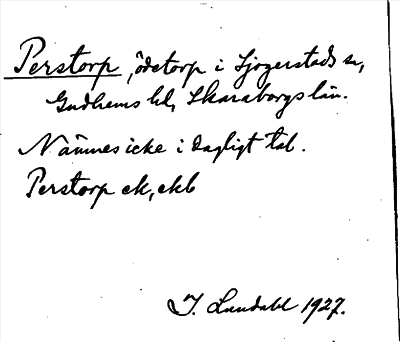 Perstorp, ödetorp i Sjogerstads sn,
Gudhems hd, Skaraborgs län.
Nämnes icke i dagligt tal.
Perstorp ek, ekb
J. Lundahl 1927.